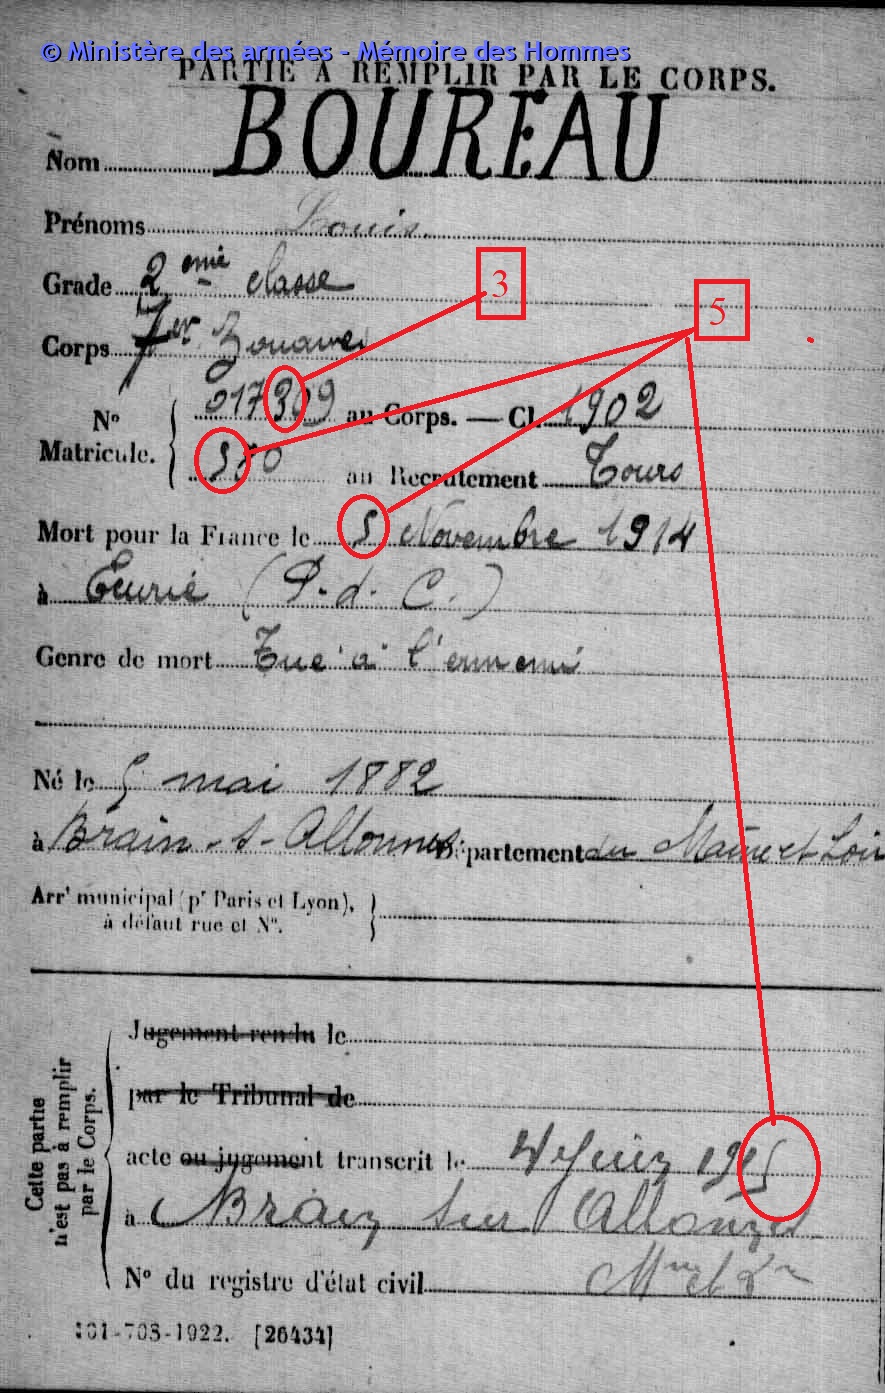 © Ministère des armées - Mémoire des Hommes
PARTIE A REMPLIR PAR LE CORPS.
Nom BOUREAU
Prénoms Louis.
Grade 2 ème classe
3
5
Corps 7er Zouaves
No
Matricule.
017309 au Corps. — Cl. 1902
550 au Recrutement Tours
Mort pour la France le 5 Novembre 1914
à Ecurie (P. d. C.)
Genre de mort Tué à l'ennemi
Né le 5 mai 1882
à Brain-s-Allonnes Département du Maine et Loir
Arrt municipal (pr Paris et Lyon),
à défaut rue et No.
Cette partie
n'est pas à remplir
par le Corps.
Jugement rendu le
par le Tribunal de
acte ou jugement transcrit le 4 Juin 1915
à Brain sur Allonnes
No du registre d'état civil Mne et Lre
101-708-1922. [26434]